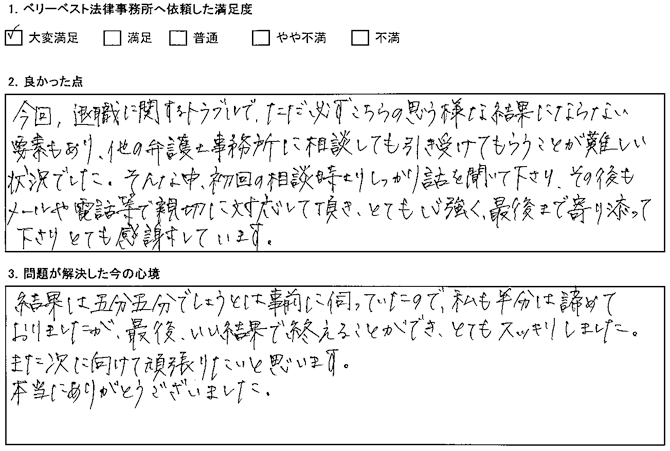 1. ベリーベスト法律事務所へ依頼した満足度
☑ 大変満足 □ 満足 □ 普通 □ やや不満 □ 不満
2. 良かった点
今回、退職に関するトラブルで、ただ必ずこちらの思う様な結果にならない
要素もあり、他の弁護士事務所に相談しても引き受けてもらうことが難しい
状況でした。そんな中、初回の相談時よりしっかり話を聞いて下さり、その後も
メールや電話等で親切に対応して頂き、とても心強く、最後まで寄り添って
下さりとても感謝しています。
3. 問題が解決した今の心境
結果は五分五分でしょうとは事前に伺っていたので、私も半分は諦めて
おりましたが、最後、いい結果で終えることができ、とてもスッキリしました。
また次に向けて頑張りたいと思います。
本当にありがとうございました。